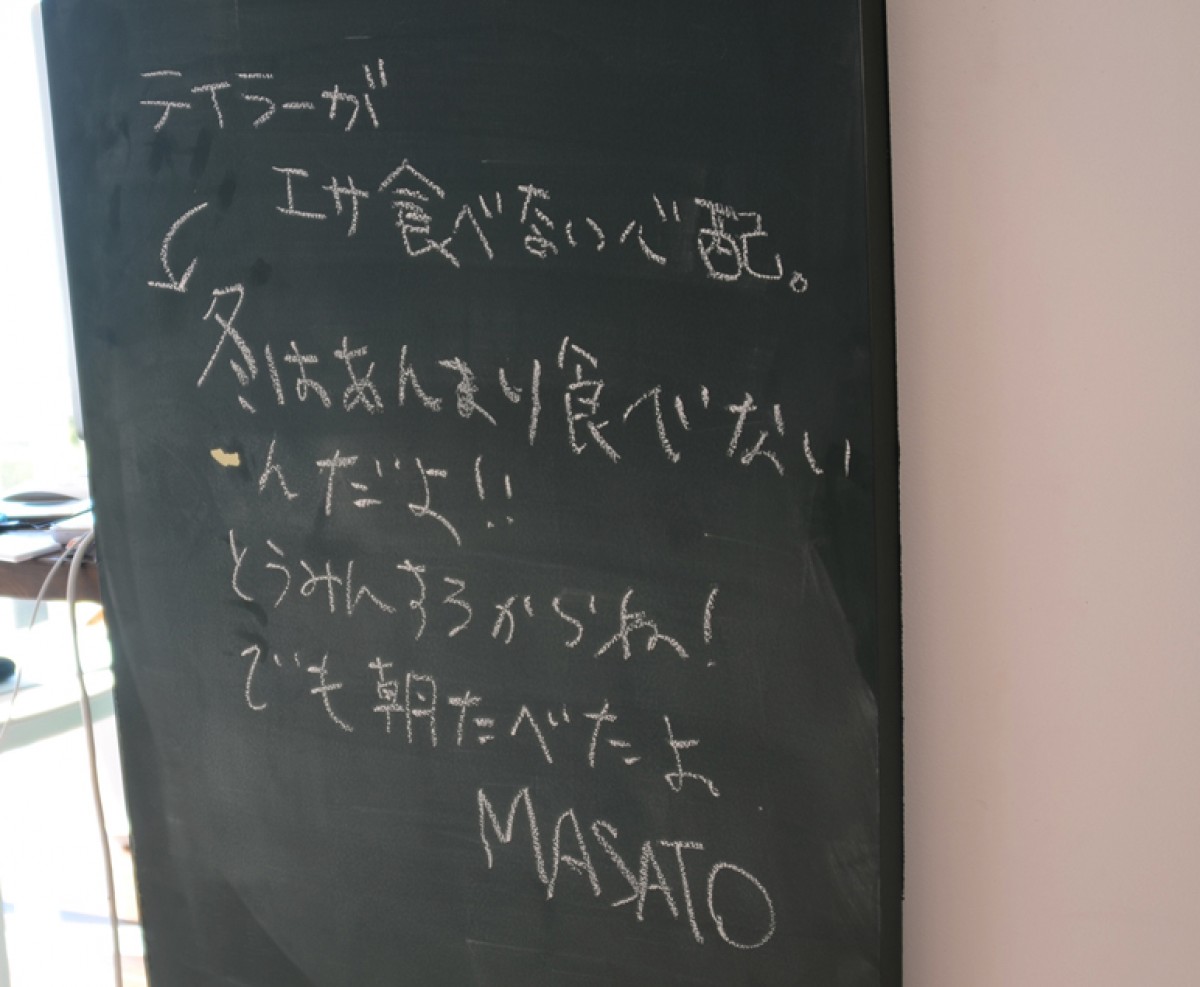 テイラーが
エサ食べない心配。
冬はあんまり食べない
んだよ!!
とうみんするからね!
でも朝たべたよ
MASATO